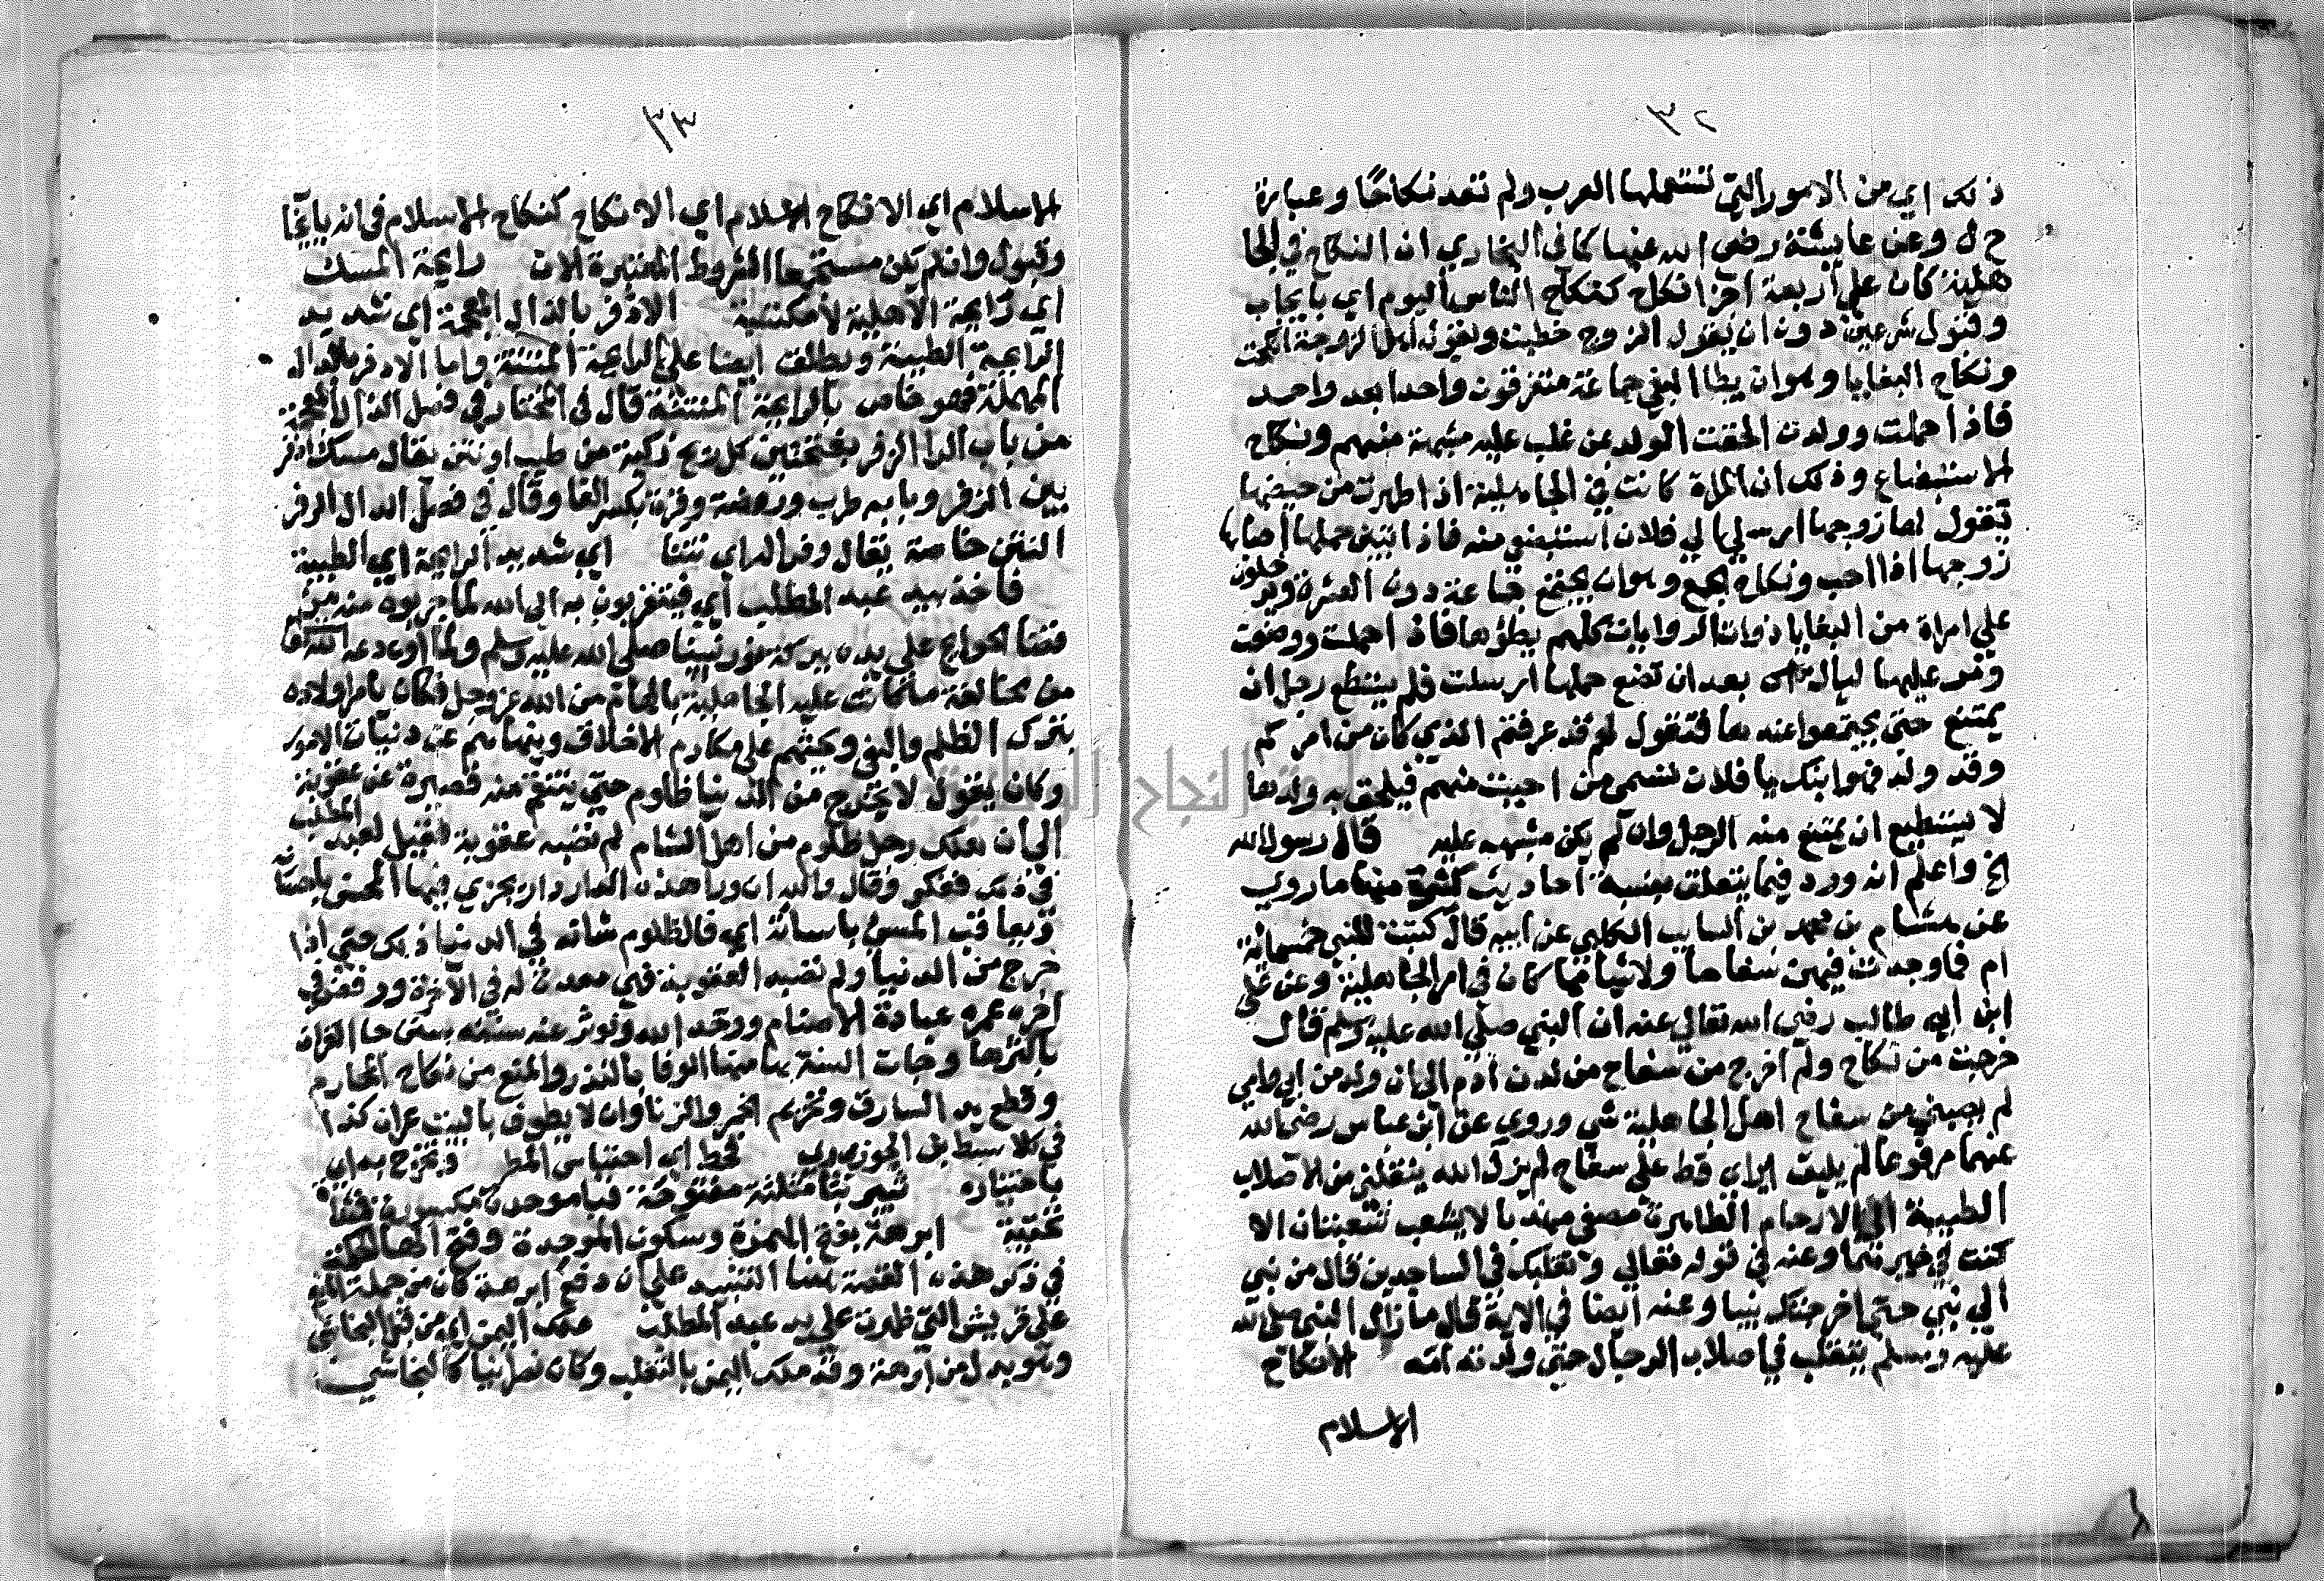 ٣٢
ذلك اي من الامور التي تستعملها العرب ولم تعد نكاحا وعبارة
ح ل وعن عايشة رضي الله عنها كما في البخاري ان النكاح في الجا
هلية كان على اربعة انكاح كنكاح الناس اليوم اي بايجاب
وقبول شرعيين دون ان يقول الزوج خطبت ويقول اهل الزوجة انكحت
ونكاح البغايا وهو ان يطا البغي جماعة متفرقون واحدا بعد واحد
فاذا حملت وولدت الحقت الولد عن غلب عليه مشبهة منهم ونكاح
الاستبضاع وذلك ان المراة كانت في الجاهلية اذا طهرت من حيضها
يقول لها زوجها ارسلي الي فلان استبضعي منه فاذا تبين حملها اصابها
زوجها اذا احب ونكاح الجمع وهو ان يجتمع جماعة دون العشرة ويدخلون
على امراة من البغايا ذوات الرايات كلهم يطؤها فاذا حملت ووضعت
ومر عليها ليال بعد ان تضع حملها ارسلت فلم يستطع رجل ان
يمتنع حتى يجتمعوا عندها فتقول لهم قد عرفتم الذي كان من امركم
وقد ولدت فهو ابنك يا فلان تسمي من احبت منهم فيلحق به ولدها
لا يستطيع ان يمتنع منه الرجل وان لم يكن مشبهه عليه قال رسول الله
الخ واعلم انه ورد فيما يتعلق بنسبه احاديث كثيرة منها ما روي
عن هشام بن محمد بن السايب الكلبي عن ابيه قال كتبت للنبي خمسمائة
ام فما وجدت فيهن سفاحا ولا شيا مما كان في امر الجاهلية وعن علي
ابن ابي طالب رضي الله تعالى عنه ان النبي صلى الله عليه وسلم قال
خرجت من نكاح ولم اخرج من سفاح من لدن ادم الى ان ولدني ابي وامي
لم يصبني من سفاح اهل الجاهلية شي وروي عن ابن عباس رضي الله
عنهما مرفوعا لم يلتق ابواي قط على سفاح لم يزل الله ينقلني من الاصلاب
الطيبة الى الارحام الطاهرة مصفى مهذبا لا يتشعب شعبتان الا
كنت في خيرهما وعنه في قوله تعالى وتقلبك في الساجدين قال من نبي
الى نبي حتى اخرجتك نبيا وعنه ايضا في الاية قال ما زال النبي صلى الله
عليه وسلم يتقلب في اصلاب الرجال حتى ولدته امه الا نكاح
الاسلام
٣٣
الاسلام اي الا نكاح الاسلام اي الا نكاح كنكاح الاسلام في انه بايجاب
وقبول وان لم يكن مستجمعا الشروط المعتبرة الان رايحة المسك
اي رايحة الاصلية لا مكتسبة الاذفر بالذال المعجمة اي شديد
الرايحة الطيبة ويطلق ايضا على الرايحة المنتنة واما الادفر بالدال
المهملة فهو خاص بالرايحة المنتنة قال في المختار في فصل الذال المعجمة
من باب الرا الذفر بفتحتين كل ريح ذكية من طيب او نتن يقال مسك اذفر
بين الذفر وبابه طرب وروضة ذفرة بكسر الفا وقال في فصل الدال الدفر
النتن خاصة يقال دفرا له اي نتنا اي شديد الرايحة اي الطيبة
فاخذ بيد عبد المطلب اي فيتقربون به الى الله لما جربوه منه من
قضا الحوايج على يده ببركة نور نبينا صلى الله عليه وسلم ولما اودعه الله
من مخالفة ما كانت عليه الجاهلية بالهام من الله عز وجل فكان يامر اولاده
بترك الظلم والبغي ويحثهم على مكارم الاخلاق وينهاهم عن دنيات الامور
وكان يقول لا يخرج من الدنيا ظلوم حتى ينتقم منه وتصيبه عقوبة
الى ان هلك رجل ظلوم من اهل الشام لم تصبه عقوبة فقيل لعبد المطلب
في ذلك ففكر وقال والله ان وراء هذه الدار دار يجزى فيها المحسن باحسانه
ويعاقب المسئ باساته اي فالظلوم شانه في الدنيا ذلك حتى اذا
خرج من الدنيا ولم تصبه العقوبة فهي معدة له في الاخرة ورفض في
اخره عمره عبادة الاصنام ووحد الله وتوثر عنه سنن جا القران
باكثرها وجات السنة بها منها الوفا بالنذر والمنع من نكاح المحارم
وقطع يد السارق وتحريم الخمر والزنا وان لا يطوف بالبيت عريان كذا
في كلام سبط بن الجوزي قحط اي احتباس المطر ويخرج به اي
باختياره ثبير بثا مثلثة مفتوحة فبا موحدة مكسورة فيا
تحتية ابرهة بفتح الهمزة وسكون الموحدة وفتح الها الحكمة
في ذكر هذه القصة هنا التنبيه على ان دفع ابرهة كان من جملة النعم
على قريش التي ظهرت على يد عبد المطلب ملك اليمن اي من قبل النجاشي
وقد ملك اليمن بالتغلب وكان نصرانيا كالنجاشي